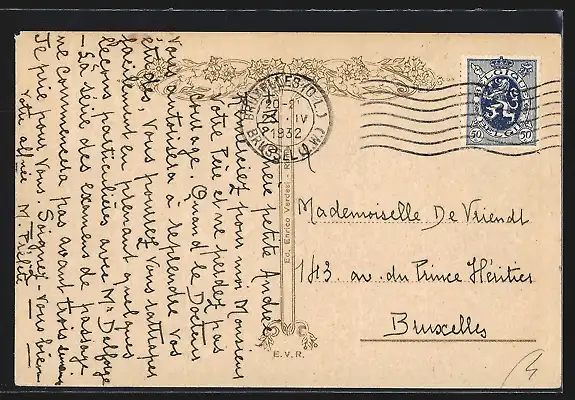 Ma chère petite Andrée
Remerciez pour moi Monsieur
votre Père et ne perdez pas
courage. Quand le Docteur
vous autorisera à reprendre vos
études, vous pourrez vous rattraper
facilement en prenant quelques
leçons particulières avec Mr
- La série des examens de passage
ne commencera pas avant trois
Je prie pour vous. Soignez-vous bien
Votre affnée M.
BRUXELLES (Q.L.)
20-21
IV
1932
BRUSSEL (W.)
BELGIQUE
BELGIË
50 50
Mademoiselle De Vriendt
143 av. du Prince Héritier
Bruxelles
Ed. Enrico Verdesi - R
E.V.R.